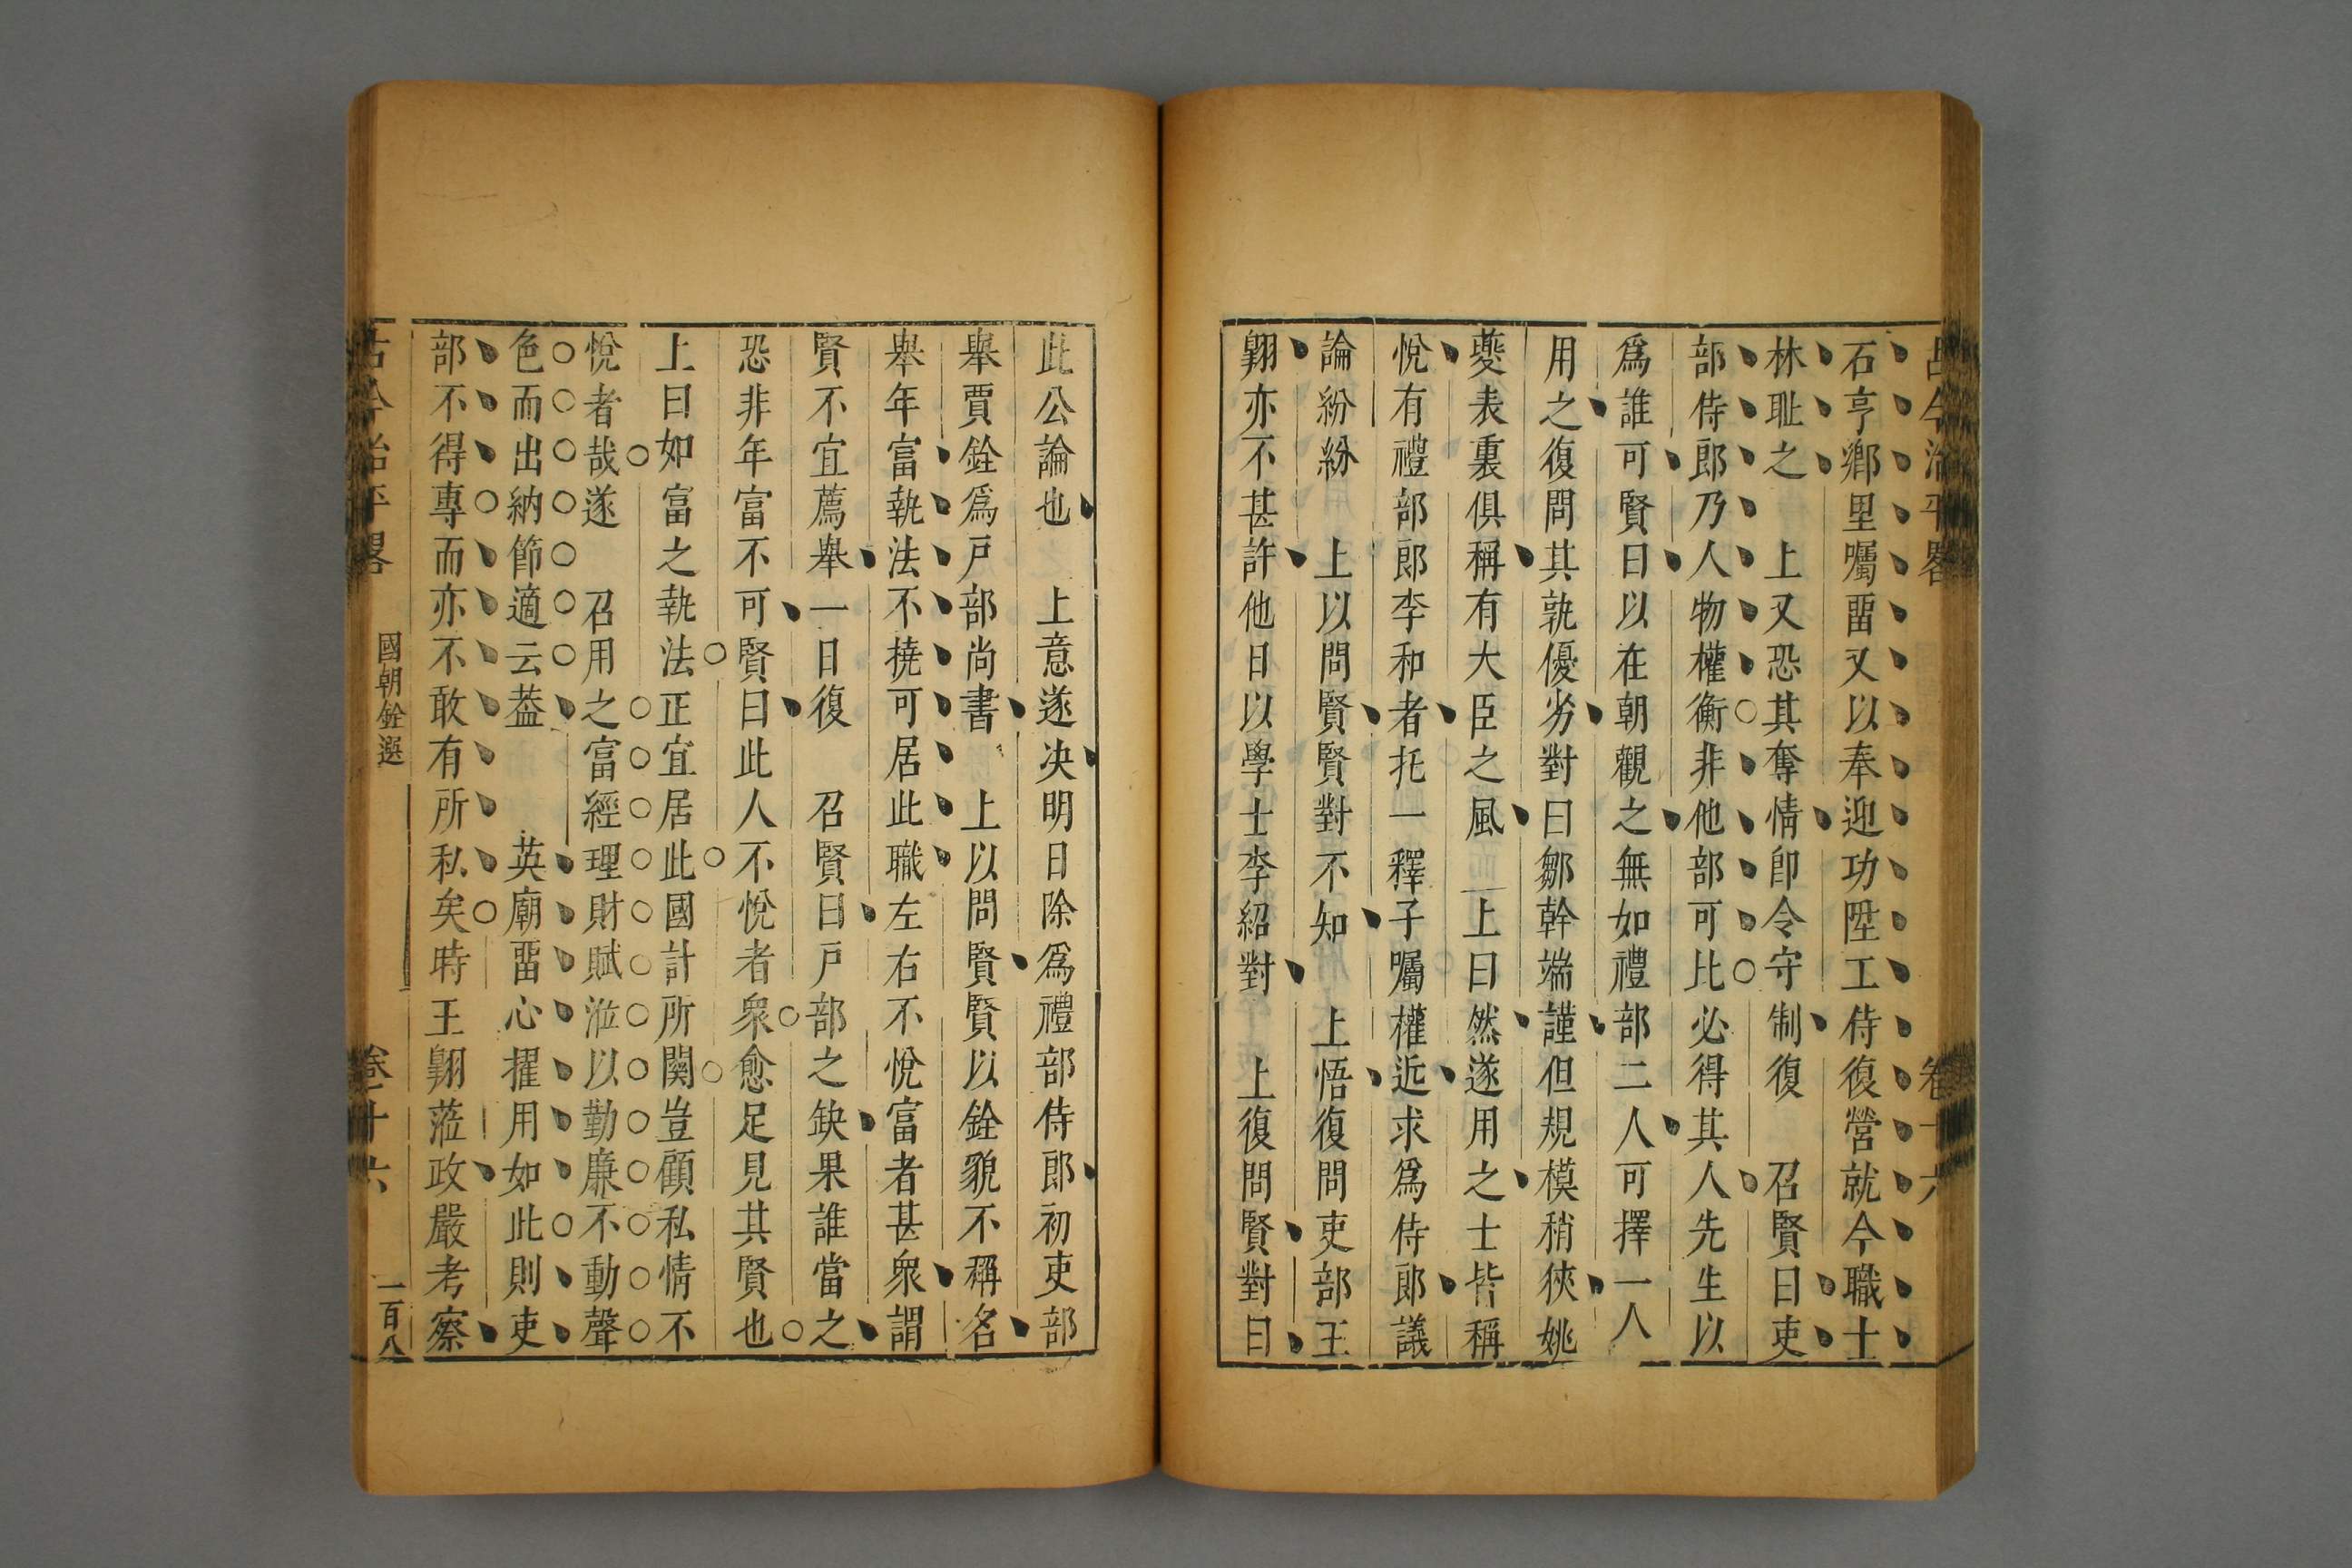 古今治平畧 卷十六
石亨鄉里囑畱又以奉迎功陞工侍復營就今職士
林耻之 上又恐其奪情卽令守制復 召賢曰吏
部侍郎乃人物權衡非他部可比必得其人先生以
爲誰可賢曰以在朝觀之無如禮部二人可擇一人
用之復問其孰優劣對曰鄒幹端謹但規模稍狹姚
夔表裏俱稱有大臣之風 上曰然遂用之士皆稱
悅有禮部郎李和者托一釋子囑權近求爲侍郎議
論紛紛 上以問賢賢對不知 上悟復問吏部王
翺亦不甚許他日以學士李紹對 上復問賢對曰
此公論也 上意遂决明日除爲禮部侍郎初吏部
舉賈銓爲戶部尚書 上以問賢賢以銓貌不稱名
舉年富執法不撓可居此職左右不悅富者甚衆謂
賢不宜薦舉一日復 召賢曰戶部之缺果誰當之
恐非年富不可賢曰此人不悅者衆愈足見其賢也
上曰如富之執法正宜居此國計所關豈顧私情不
悅者哉遂 召用之富經理財賦涖以勤廉不動聲
色而出納節適云葢 英廟畱心擢用如此則吏
部不得專而亦不敢有所私矣時王翺蒞政嚴考察
古今治平畧 國朝銓選 卷十六 一百八